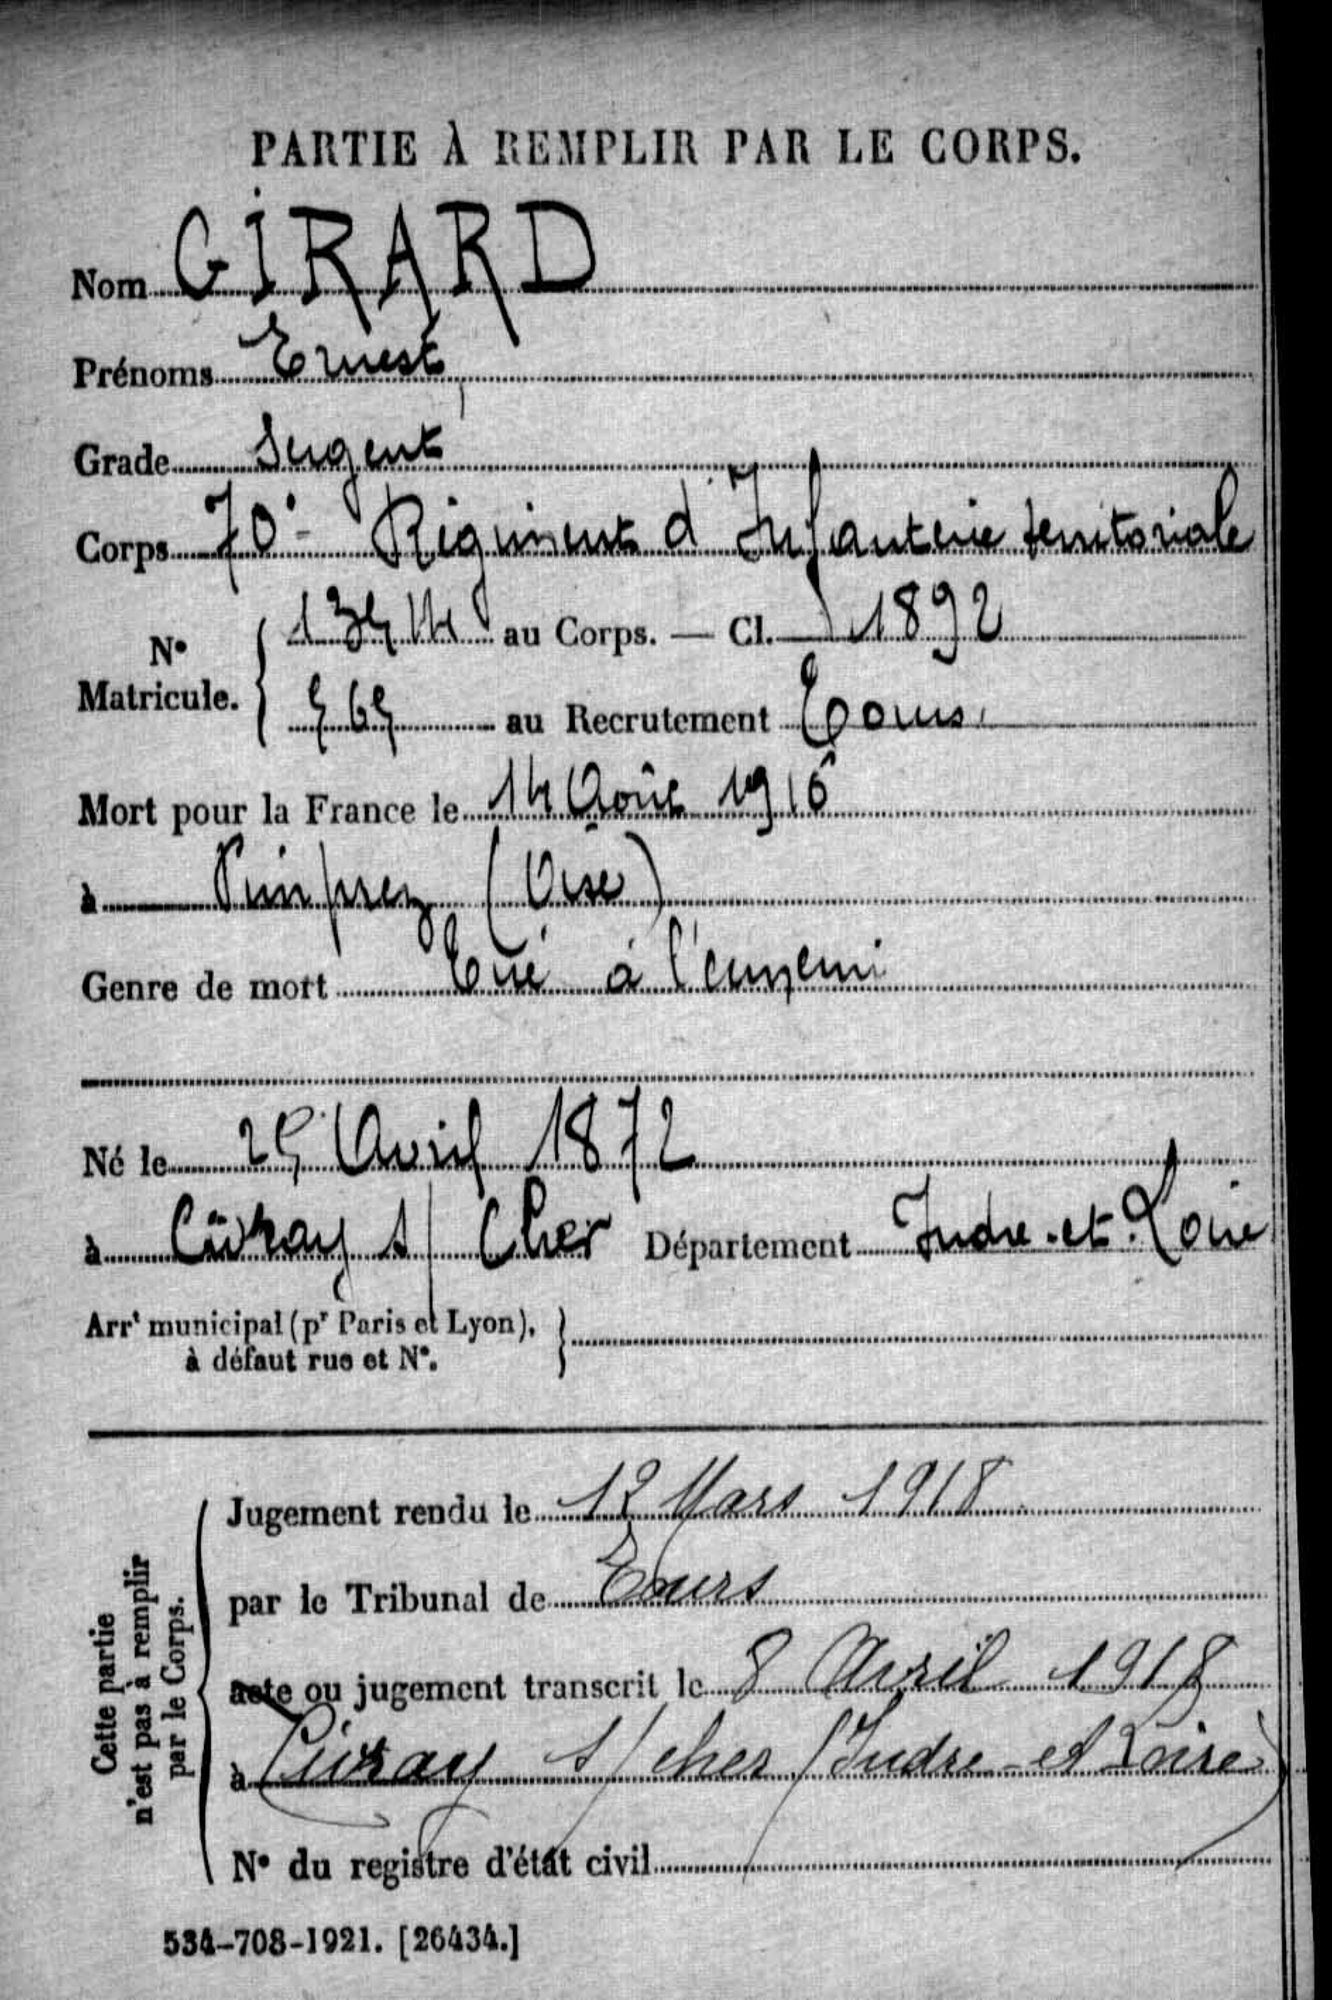 PARTIE À REMPLIR PAR LE CORPS.
Nom GIRARD
Prénoms Ernest,
Grade Sergent
Corps 70e Régiment d'Infanterie territoriale
N° Matricule. au Corps. — Cl. 1892
565 au Recrutement Tours.
Mort pour la France le 14 Août 1916
à Pimprez (Oise)
Genre de mort Tué à l'ennemi
Né le 25 Avril 1872
à Civray s/ Cher Département Indre-et-Loire
Arrt municipal (pr Paris et Lyon),
à défaut rue et N°.
Cette partie
n'est pas à remplir
par le Corps.
Jugement rendu le 12 Mars 1918
par le Tribunal de Tours
acte ou jugement transcrit le 8 Avril 1918
à Civray s/ cher (Indre-et Loire)
N° du registre d'état civil
534-708-1921. [26434.]